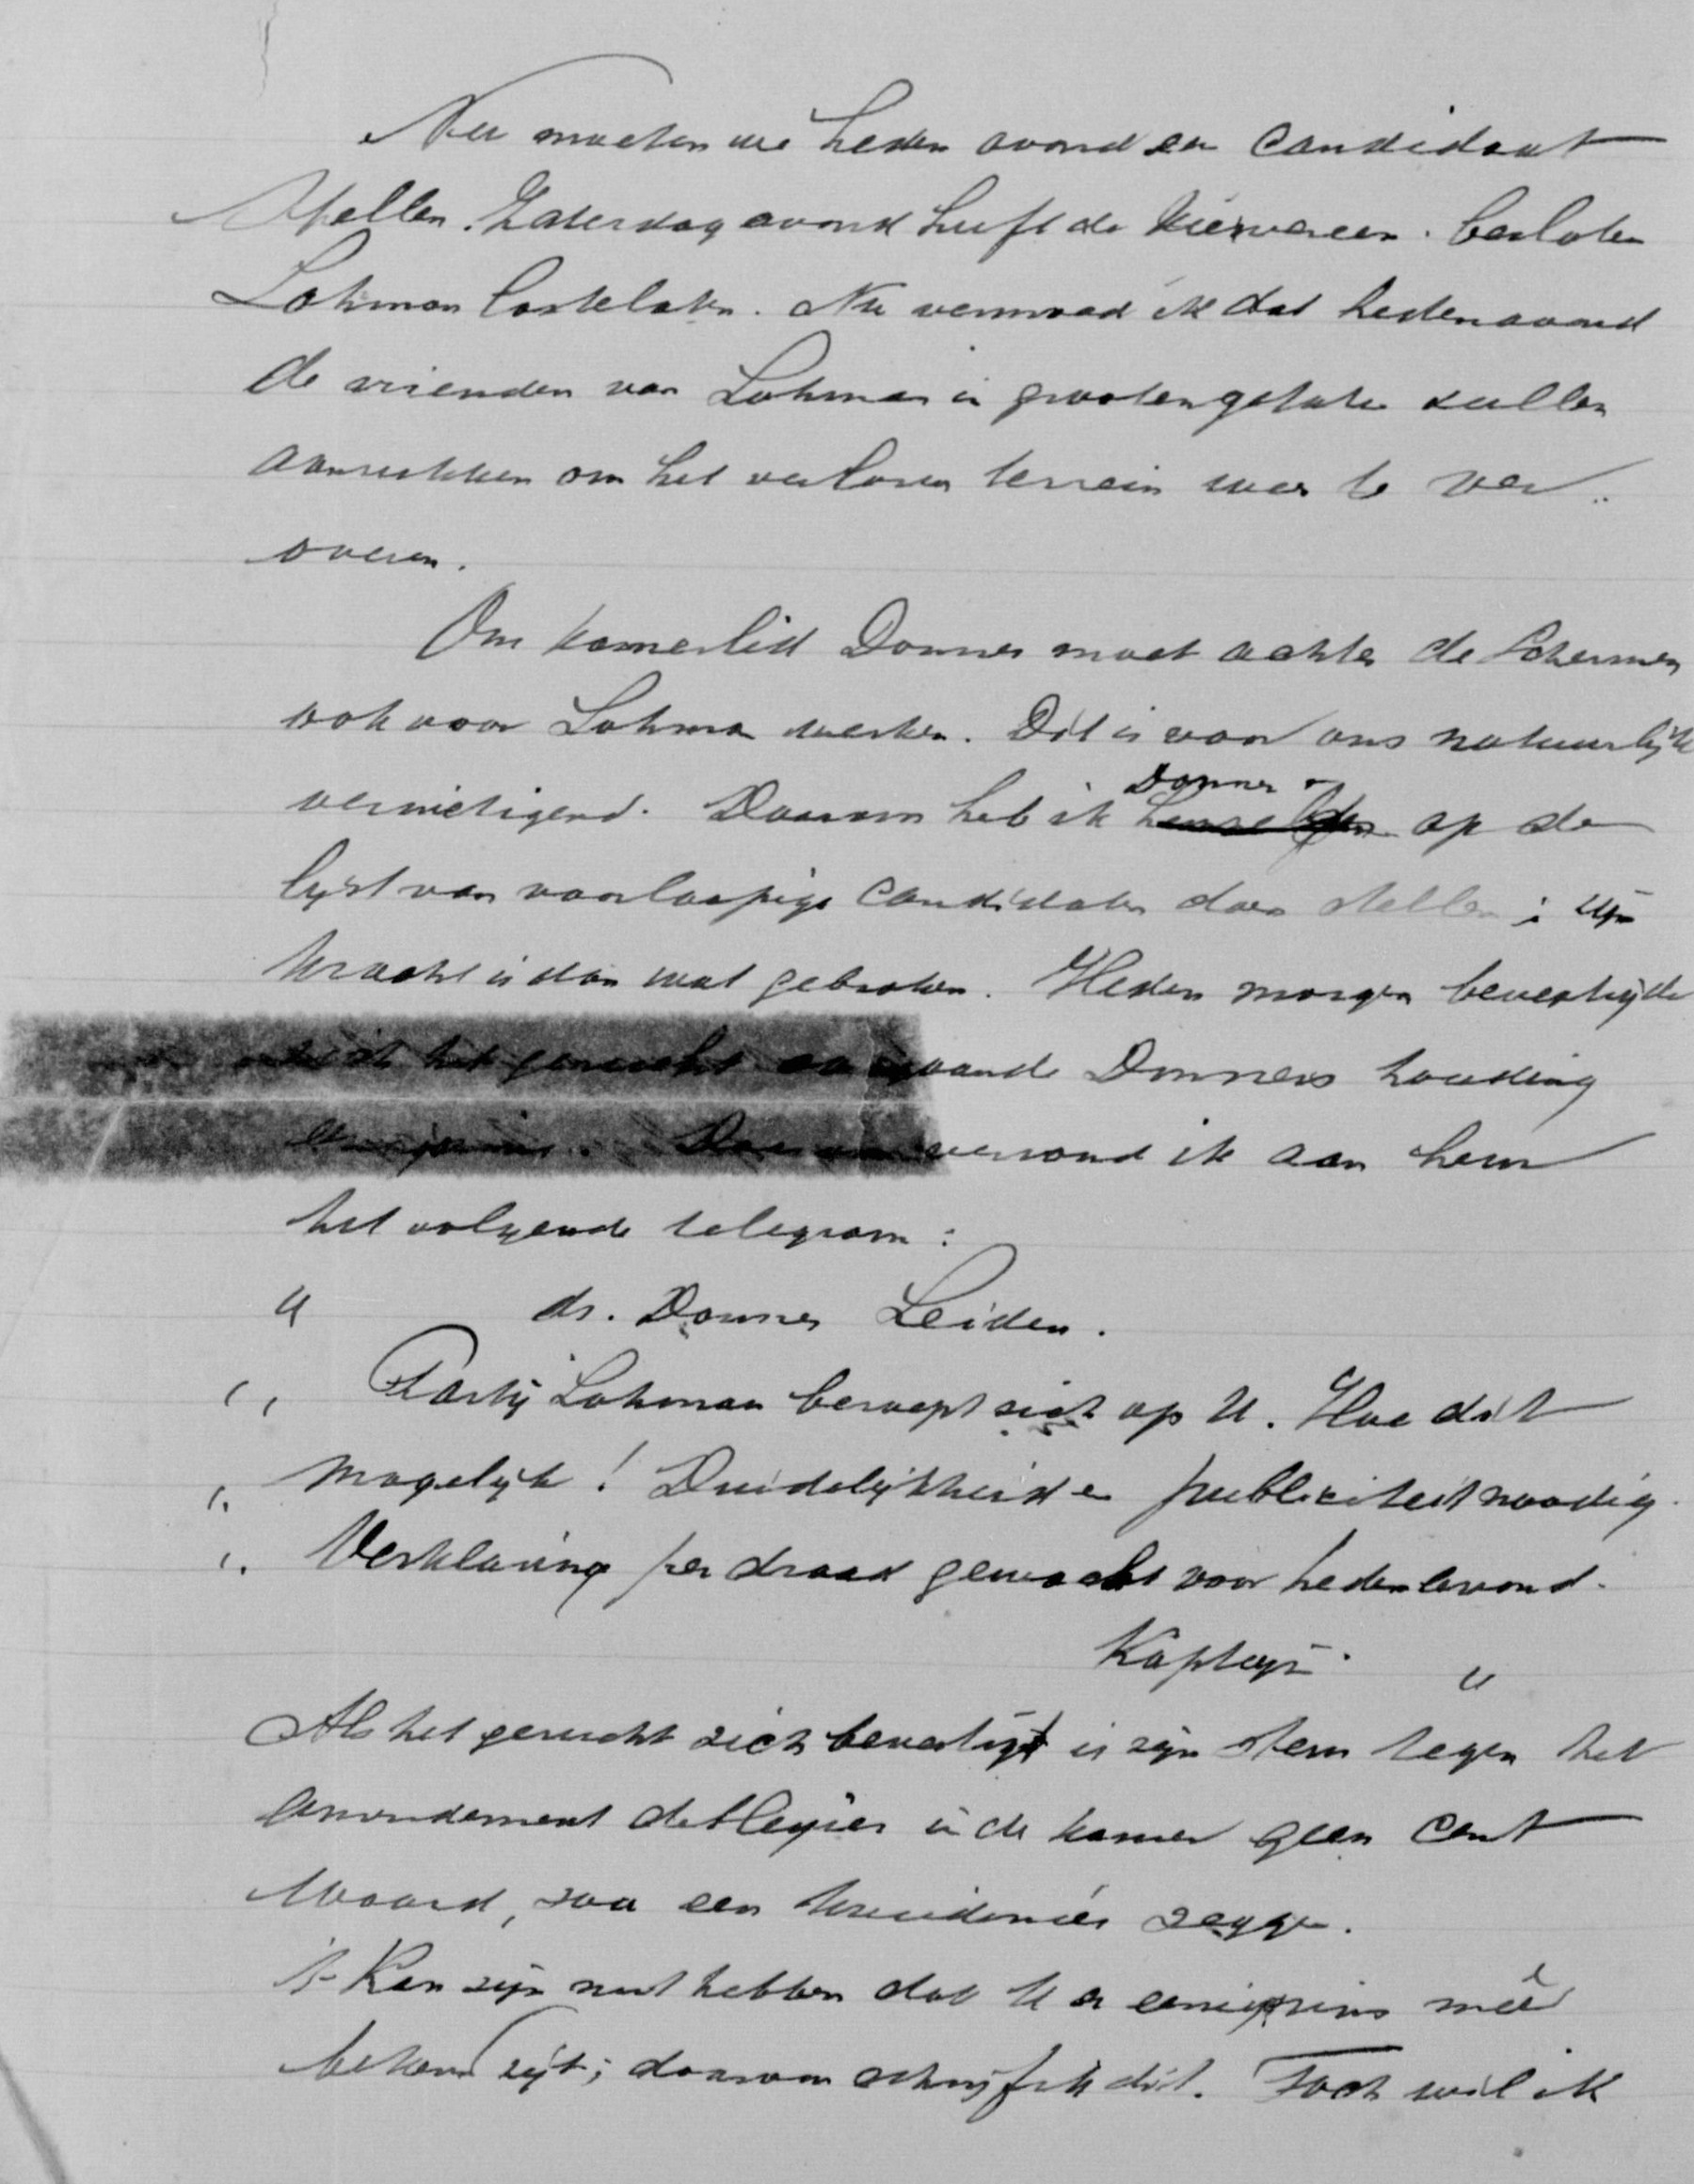 Nu moeten we heden avond een candidaat
stellen. Zaterdag avond heeft de kiesvereen. besloten
Lohman los te laten. Nu vermoed ik dat hedenavond
de vrienden van Lohman in grooten getale zullen
aanrukken om het verloren terrein weer te ver-
overen.
Ons kamerlid Donner moet achter de schermen
ook voor Lohman werken. Dit is voor ons natuurlijk
vernietigend. Daarom heb ik Donner op de
lijst van voorloopige candidaten doen stellen; zijn
kracht is dan wat gebroken. Heden morgen bevestigde
zich het gerucht aangaande Donners houding
eenigszins. Daarom verzond ik aan hem
het volgende telegram:
" dr. Donner Leiden.
" Partij Lohman beroept zich op U. Hoe dit
" mogelijk! Duidelijkheid en publiciteit noodig.
" Verklaring per draad gewacht voor hedenavond.
Kapteyn. "
Als het gerucht zich bevestigt is zijn stem tegen het
amendement de Meyier in de kamer geen cent
waard, zou een kruidenier zeggen.
't Kan zijn nut hebben dat U er eenigszins mêe
bekend zijt; daarom schrijf ik dit. Toch wil ik